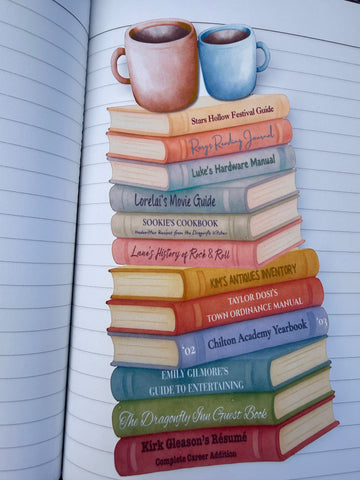 Stars Hollow Festival Guide
Rory's Reading Journal
Luke's Hardware Manual
Lorelai's Movie Guide
SOOKIE'S COOKBOOK
Handwritten Recipes from the Dragonfly Kitchen
Lane's History of Rock & Roll
KIM'S ANTIQUES INVENTORY
TAYLOR DOSI'S
TOWN ORDINANCE MANUAL
'02 Chilton Academy Yearbook '03
EMILY GILMORE'S
GUIDE TO ENTERTAINING
The Dragonfly Inn Guest Book
Kirk Gleason's Résumé
Complete Career Addition